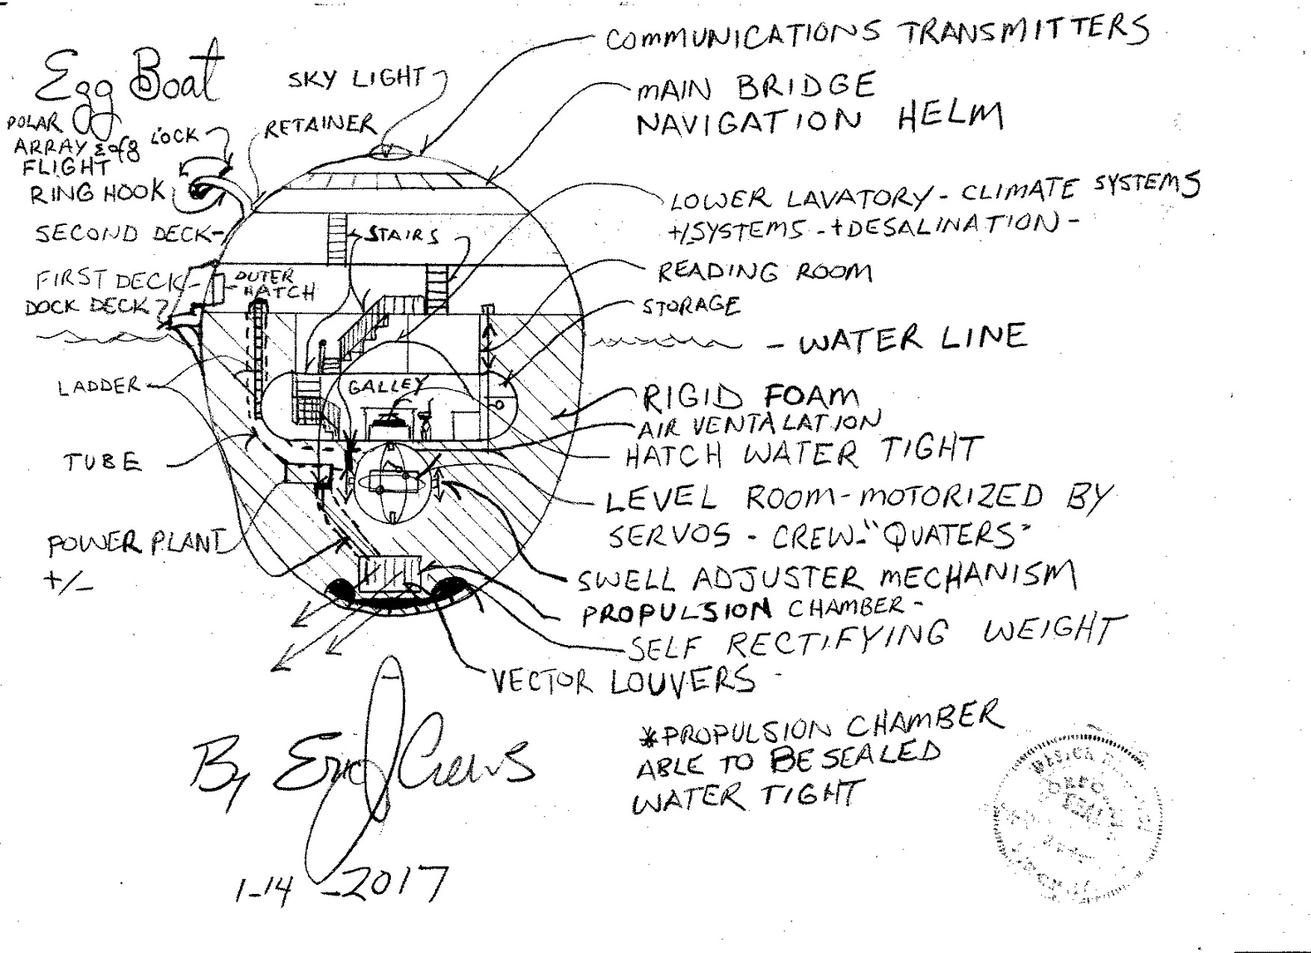 Egg Boat
POLAR
ARRAY & of 8
FLIGHT
RING HOOK
LOCK
RETAINER
SKY LIGHT
COMMUNICATIONS TRANSMITTERS
MAIN BRIDGE
NAVIGATION HELM
LOWER LAVATORY - CLIMATE SYSTEMS
+/SYSTEMS - + DESALINATION -
SECOND DECK-
STAIRS
READING ROOM
FIRST DECK-
OUTER
HATCH
DOCK DECK
STORAGE
- WATER LINE
LADDER
GALLEY
RIGID FOAM
AIR VENTALATION
HATCH WATER TIGHT
TUBE
LEVEL ROOM-MOTORIZED BY
SERVOS - CREW-"QUATERS"
POWER PLANT
+/-
SWELL ADJUSTER MECHANISM
PROPULSION CHAMBER -
SELF RECTIFYING WEIGHT
VECTOR LOUVERS -
By Eric J Crews
1-14-2017
*PROPULSION CHAMBER
ABLE TO BE SEALED
WATER TIGHT
SEAL